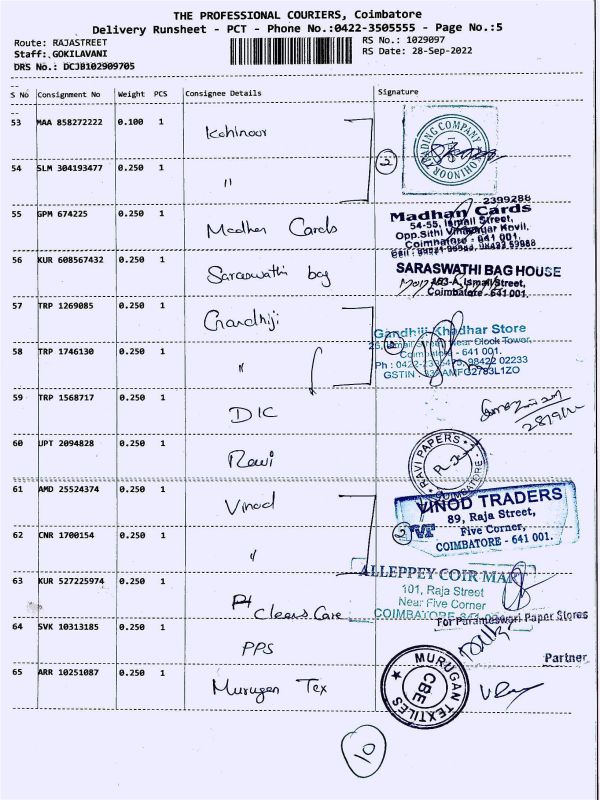 THE PROFESSIONAL COURIERS, Coimbatore
Delivery Runsheet - PCT - Phone No.:0422-3505555 - Page No.:5
Route: RAJASTREET
RS No.: 1029097
Staff: GOKILAVANI
RS Date: 28-Sep-2022
DRS No.: DCJB102909705
S No Consignment No Weight PCS Consignee Details Signature
53 MAA 858272222 0.100 1 Kohinoor
KOHINOOR TRADING COMPANY
2
54 SLM 304193477 0.250 1 "
55 GPM 674225 0.250 1 Madhan Cards
2399288
Madhan Cards
54-55, Ismail Street,
Opp.Sithi Vinayagar Kovil,
Coimbatore - 641 001.
56 KUR 608567432 0.250 1 Saraswathi bag
SARASWATHI BAG HOUSE
Ismail Street,
Coimbatore - 641 001.
57 TRP 1269085 0.250 1 Gandhiji
Gandhiji Khadhar Store
Near Clock Tower,
Coimbatore - 641 001.
58 TRP 1746130 0.250 1 "
98422 02233
59 TRP 1568717 0.250 1 DIC
28/9/22
60 UPT 2094828 0.250 1 Ravi
RAVI PAPERS
COIMBATORE
61 AMD 25524374 0.250 1 Vinod
VINOD TRADERS
89, Raja Street,
Five Corner,
COIMBATORE - 641 001.
2
VT
62 CNR 1700154 0.250 1 "
63 KUR 527225974 0.250 1 Clean Care
ALLEPPEY COIR MART
101, Raja Street
Near Five Corner
COIMBATORE
64 SVK 10313185 0.250 1 PPS
For Parameswari Paper Stores
Partner
65 ARR 10251087 0.250 1 Murugan Tex
MURUGAN TEXTILES
CBE
10